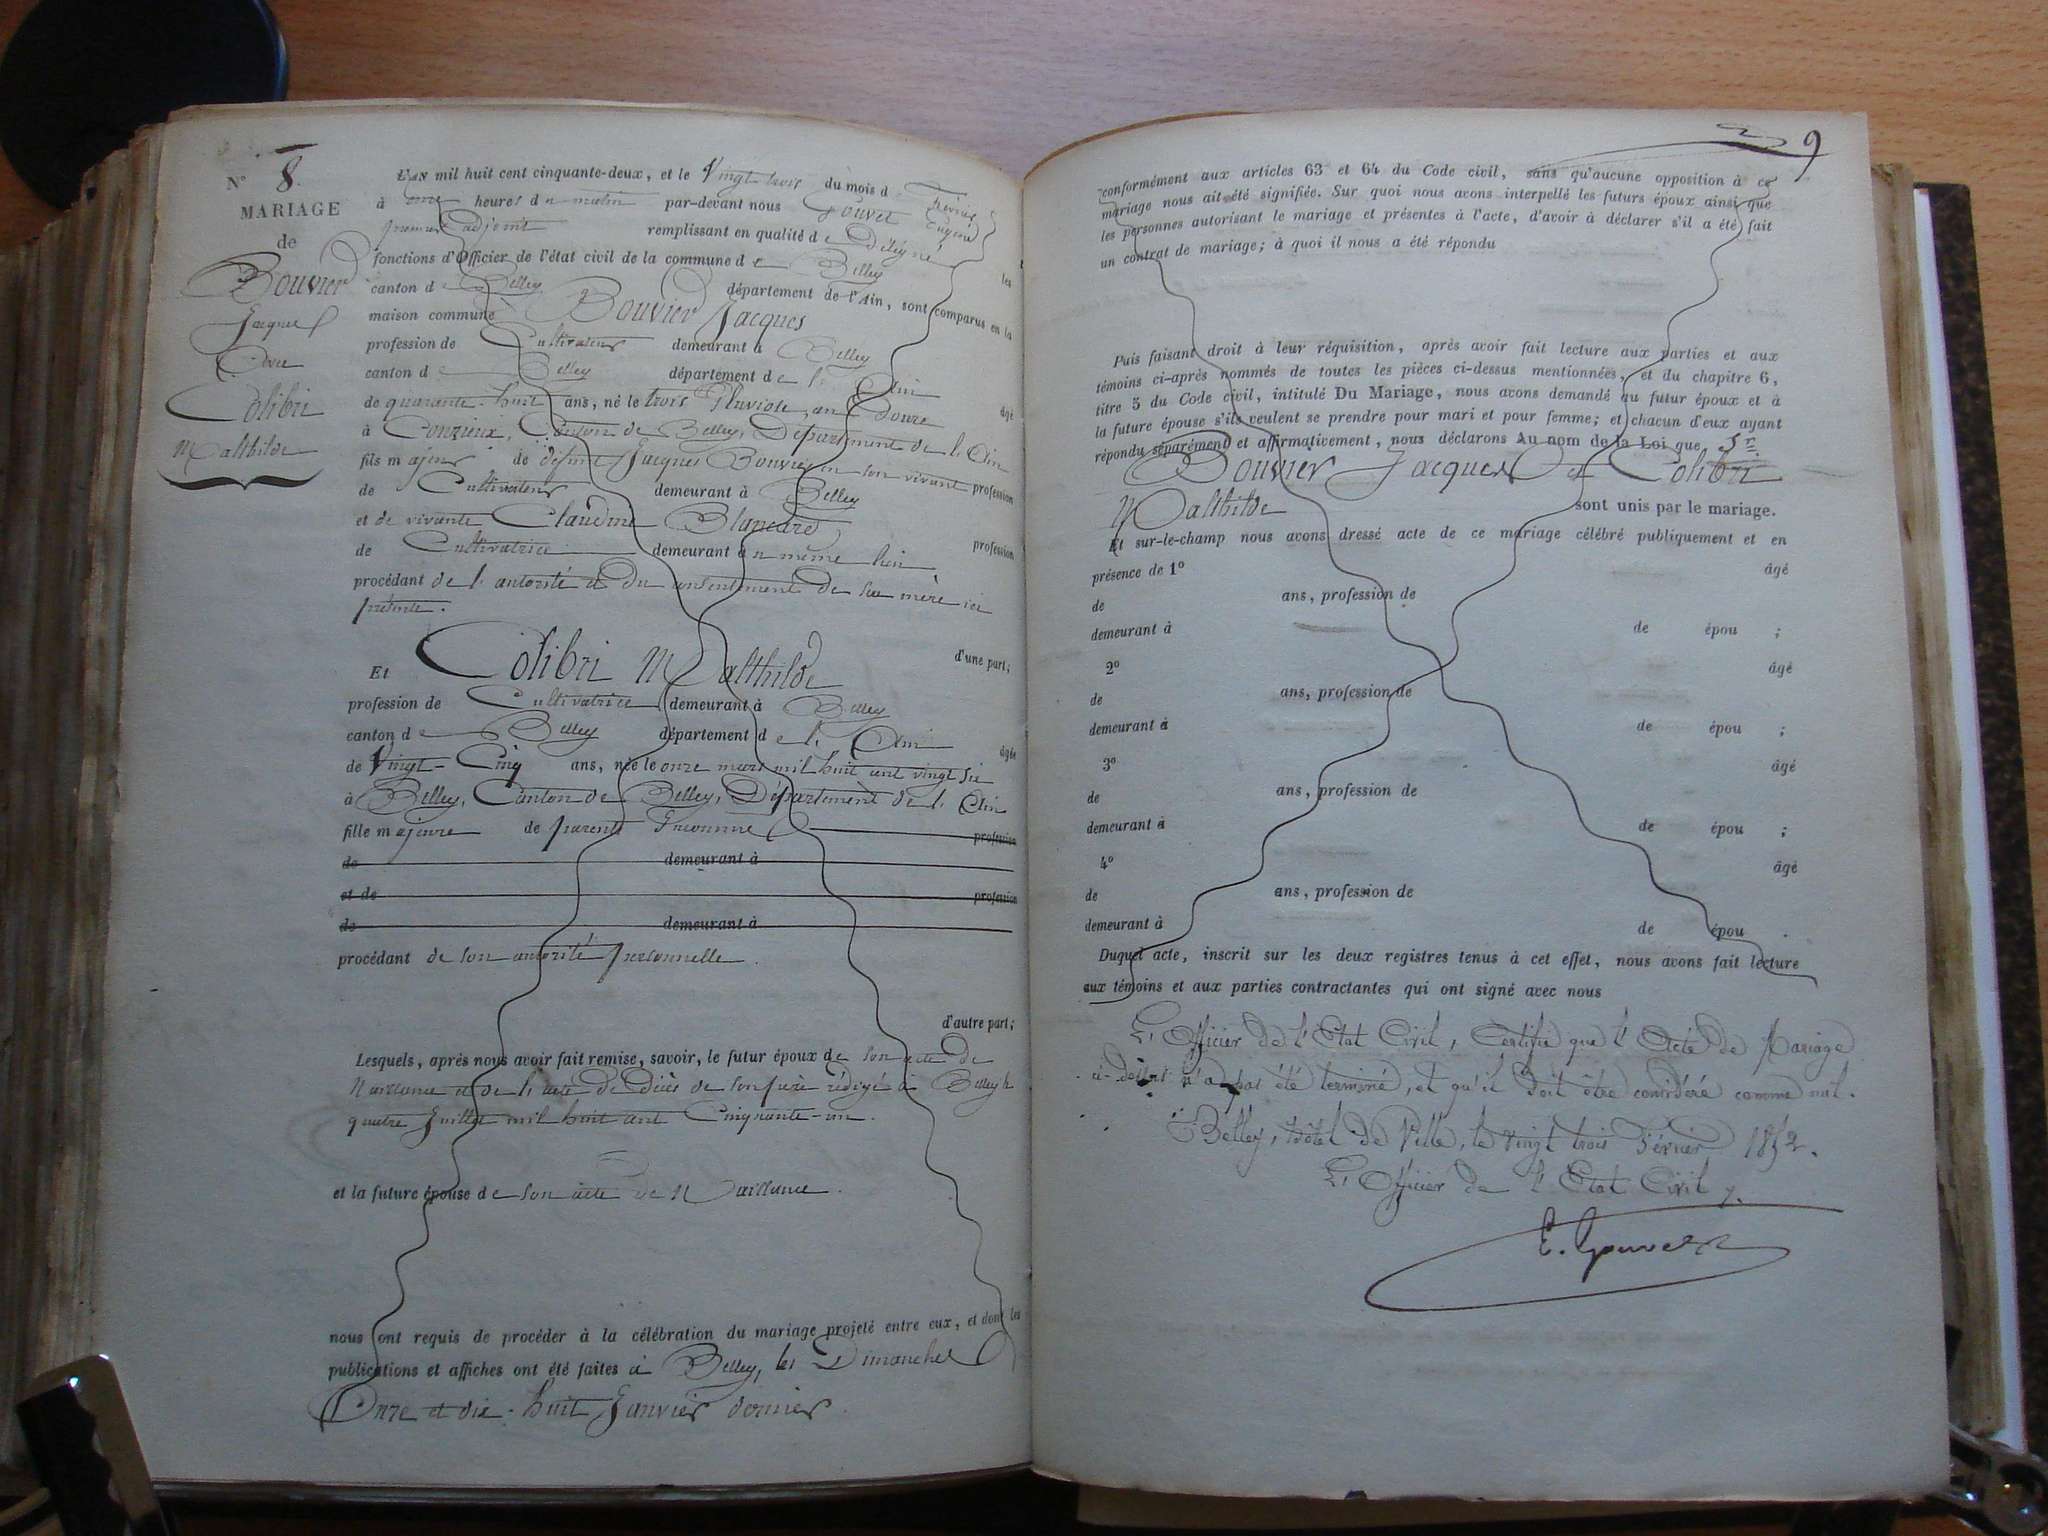 N° 8.
MARIAGE
de
Bouvier
Jacques
Avec
Colibri
Malthilde
L'AN mil huit cent cinquante-deux, et le Vingt trois du mois de Février
à onze heures du matin par-devant nous Gouvet Eugène
premier adjoint remplissant en qualité de Délégué les
fonctions d'Officier de l'état civil de la commune de Belley
canton de Belley département de l'Ain, sont comparus en la
maison commune Bouvier Jacques
profession de Cultivateur demeurant à Belley
canton de Belley département de l'Ain âgé
de quarante-huit ans, né le trois Pluviose, an Douze
à Conzieux, Canton de Belley, Département de l'Ain
fils majeur de défunt Jacques Bouvier en son vivant profession
de Cultivateur demeurant à Belley
et de vivante Claudine Blancard profession
de Cultivatrice demeurant au même lieu
procédant de l'autorité et du consentement de sa mère ici
présente.
d'une part;
Et Colibri Malthilde
profession de Cultivatrice demeurant à Belley
canton de Belley département de l'Ain âgée
de Vingt-Cinq ans, née le onze mars mil huit cent vingt six
à Belley, Canton de Belley, Département de l'Ain
fille majeure de parents Inconnus profession
de demeurant à
et de profession
de demeurant à
procédant de son autorité personnelle.
d'autre part;
Lesquels, après nous avoir fait remise, savoir, le futur époux de son acte de
Naissance et de l'acte de Décès de son père rédigé à Belley le
quatre Juillet mil huit cent Cinquante-un.
et la future épouse de son acte de Naissance.
nous ont requis de procéder à la célébration du mariage projeté entre eux, et dont les
publications et affiches ont été faites à Belley, les Dimanches
Onze et dix-huit Janvier dernier.
9
conformément aux articles 63 et 64 du Code civil, sans qu'aucune opposition à ce
mariage nous ait été signifiée. Sur quoi nous avons interpellé les futurs époux ainsi que
les personnes autorisant le mariage et présentes à l'acte, d'avoir à déclarer s'il a été fait
un contrat de mariage; à quoi il nous a été répondu
Puis faisant droit à leur réquisition, après avoir fait lecture aux parties et aux
témoins ci-après nommés de toutes les pièces ci-dessus mentionnées, et du chapitre 6,
titre 5 du Code civil, intitulé Du Mariage, nous avons demandé au futur époux et à
la future épouse s'ils veulent se prendre pour mari et pour femme; et chacun d'eux ayant
répondu séparément et affirmativement, nous déclarons Au nom de la Loi que Sr.
Bouvier Jacques et Colibri
Malthilde sont unis par le mariage.
Et sur-le-champ nous avons dressé acte de ce mariage célébré publiquement et en
présence de 1° âgé
de ans, profession de
demeurant à de épou ;
2° âgé
de ans, profession de
demeurant à de épou ;
3° âgé
de ans, profession de
demeurant à de épou ;
4° âgé
de ans, profession de
demeurant à de épou .
Duquel acte, inscrit sur les deux registres tenus à cet effet, nous avons fait lecture
aux témoins et aux parties contractantes qui ont signé avec nous
L'Officier de l'Etat Civil, Certifie que l'Acte de Mariage
ci-dessus n'a pas été terminé, et qu'il doit être considéré comme nul.
à Belley, hôtel de Ville, le vingt trois Février 1852.
L'Officier de l'Etat Civil
E. Gouvet